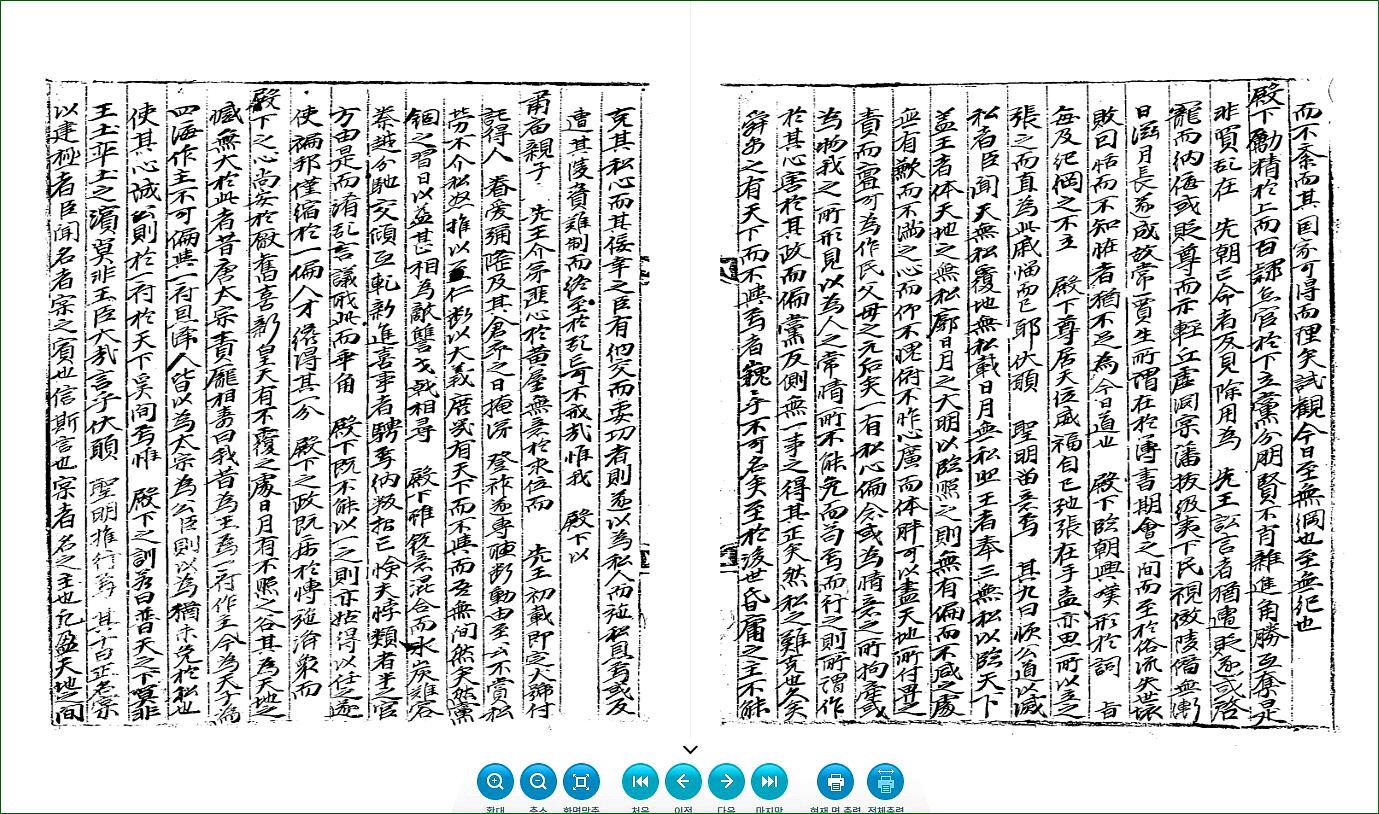 而不紊而其国家可得而理矣試観今日至無綱也至無紀也
殿下勵精於上而百隷怠官於下立黨分朋賢不肖雜進角勝互奪是
非眩乱在 先朝已命者反見除用為 先王訟言者猶遭貶逐或啓
寵而納侮或貶尊而示軽丘虚洞宗藩扳级夷下民視傲陵僣無漸
日滋月長恙成故常賈生所謂在於簿書期會之间而至於俗流失世壊
敗囙恬而不知恠者猶不足為今日道也 殿下臨朝興嘆形於詞 旨
每及紀綱之不立 殿下尊居天位威福自己弛張在手盍亦思所以立之
張之而直為此戚嗟而已耶伏願 聖明留意焉 其九曰恢公道以滅
私者臣聞天無私覆地無私載日月無私照王者奉三無私以臨天下
盖王者体天地之無私廓日月之大明以臨照之則無有偏而不咸之處
無有歉而不满之心而仰不愧俯不怍心廣而体胖可以盡天地所付畀之
責而寘可為作民父母之元后矣一有私心偏念或為情意之所拘牽或
為物我之所形見以為人之常情所不能免而苟焉而行之則所謂作
於其心害於其政而偏黨反側無一事之得其正矣然私之難克也久矣
舜禹之有天下而不與焉者巍乎不可名矣至於後世昏庸之主不能
克其私心而其倖幸之臣有佀交而要功者則遂以為私人而施私直焉或反
遭其陵負難制而終至於乱亡可不戒㢤惟我 殿下以
甫宙親子 先王介弟悲心於黄屋無意於求位而 先王初載即定大号付
託得人 眷愛彌隆及其倉卒之日掩涕 登祚遂專睡断動由至公不賞私
勞不介私怨推以至仁断以大義庶㡬有天下而不與而吾無间然矣然黨
錮之習日以益甚相為敵讐戈戟相尋 殿下雖銳意混合而氷炭難容
秦越分馳交傾互軋新進喜事者騁焉納叛招亡怪夫悖類者半之官
方由是而淆乱言議戕此而乖角 殿下既不能以一之則亦姑得以任之遂
使褊邦僅缩於一偏人才僅得其一分 殿下之政既病於博施済衆而
殿下之心尚安於厭舊喜新皇天有不覆之處日月有不照之谷其為天地之
憾無大於此者昔唐太宗責龐相壽曰我昔為王為一府作主今為天子為
四海作主不可偏與一府恩澤人皆以為太宗為公臣則以為猶未免於私也
使其心誠公則於一府於天下奚间焉惟 殿下之訓有曰普天之下莫非
王土率土之濱莫非王臣大㢤言乎伏願 聖明推行焉 其十曰正名宗
以建極者臣聞名者宗之賓也信斯言也宗者名之主也凢盈天地之间
확대
축소
화면맞춤
처음
이전
다음
마지막
현재 면 출력
전체출력